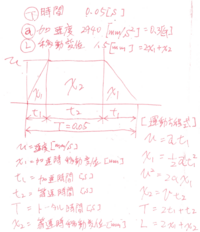 Ⓣ 時間 0.05[s]
ⓐ 加速度 2940 [mm/s²] = 0.3[G]
Ⓛ 移動量 1.5[mm] = 2x₁+x₂
u
x₁ x₂ x₁
t₁ t₂ t₁
T = 0.05
u = 速度[mm/s]
x₁ = 加速時移動量[mm]
t₁ = 加速時間[s]
t₂ = 等速時間[s]
T = トータル時間[s]
x₂ = 等速時移動量[mm]
[運動方程式]
u = at₁
x₁ = ½at₁²
u² = 2ax₁
x₂ = ut₂
T = 2t₁+t₂
L = 2x₁+x₂